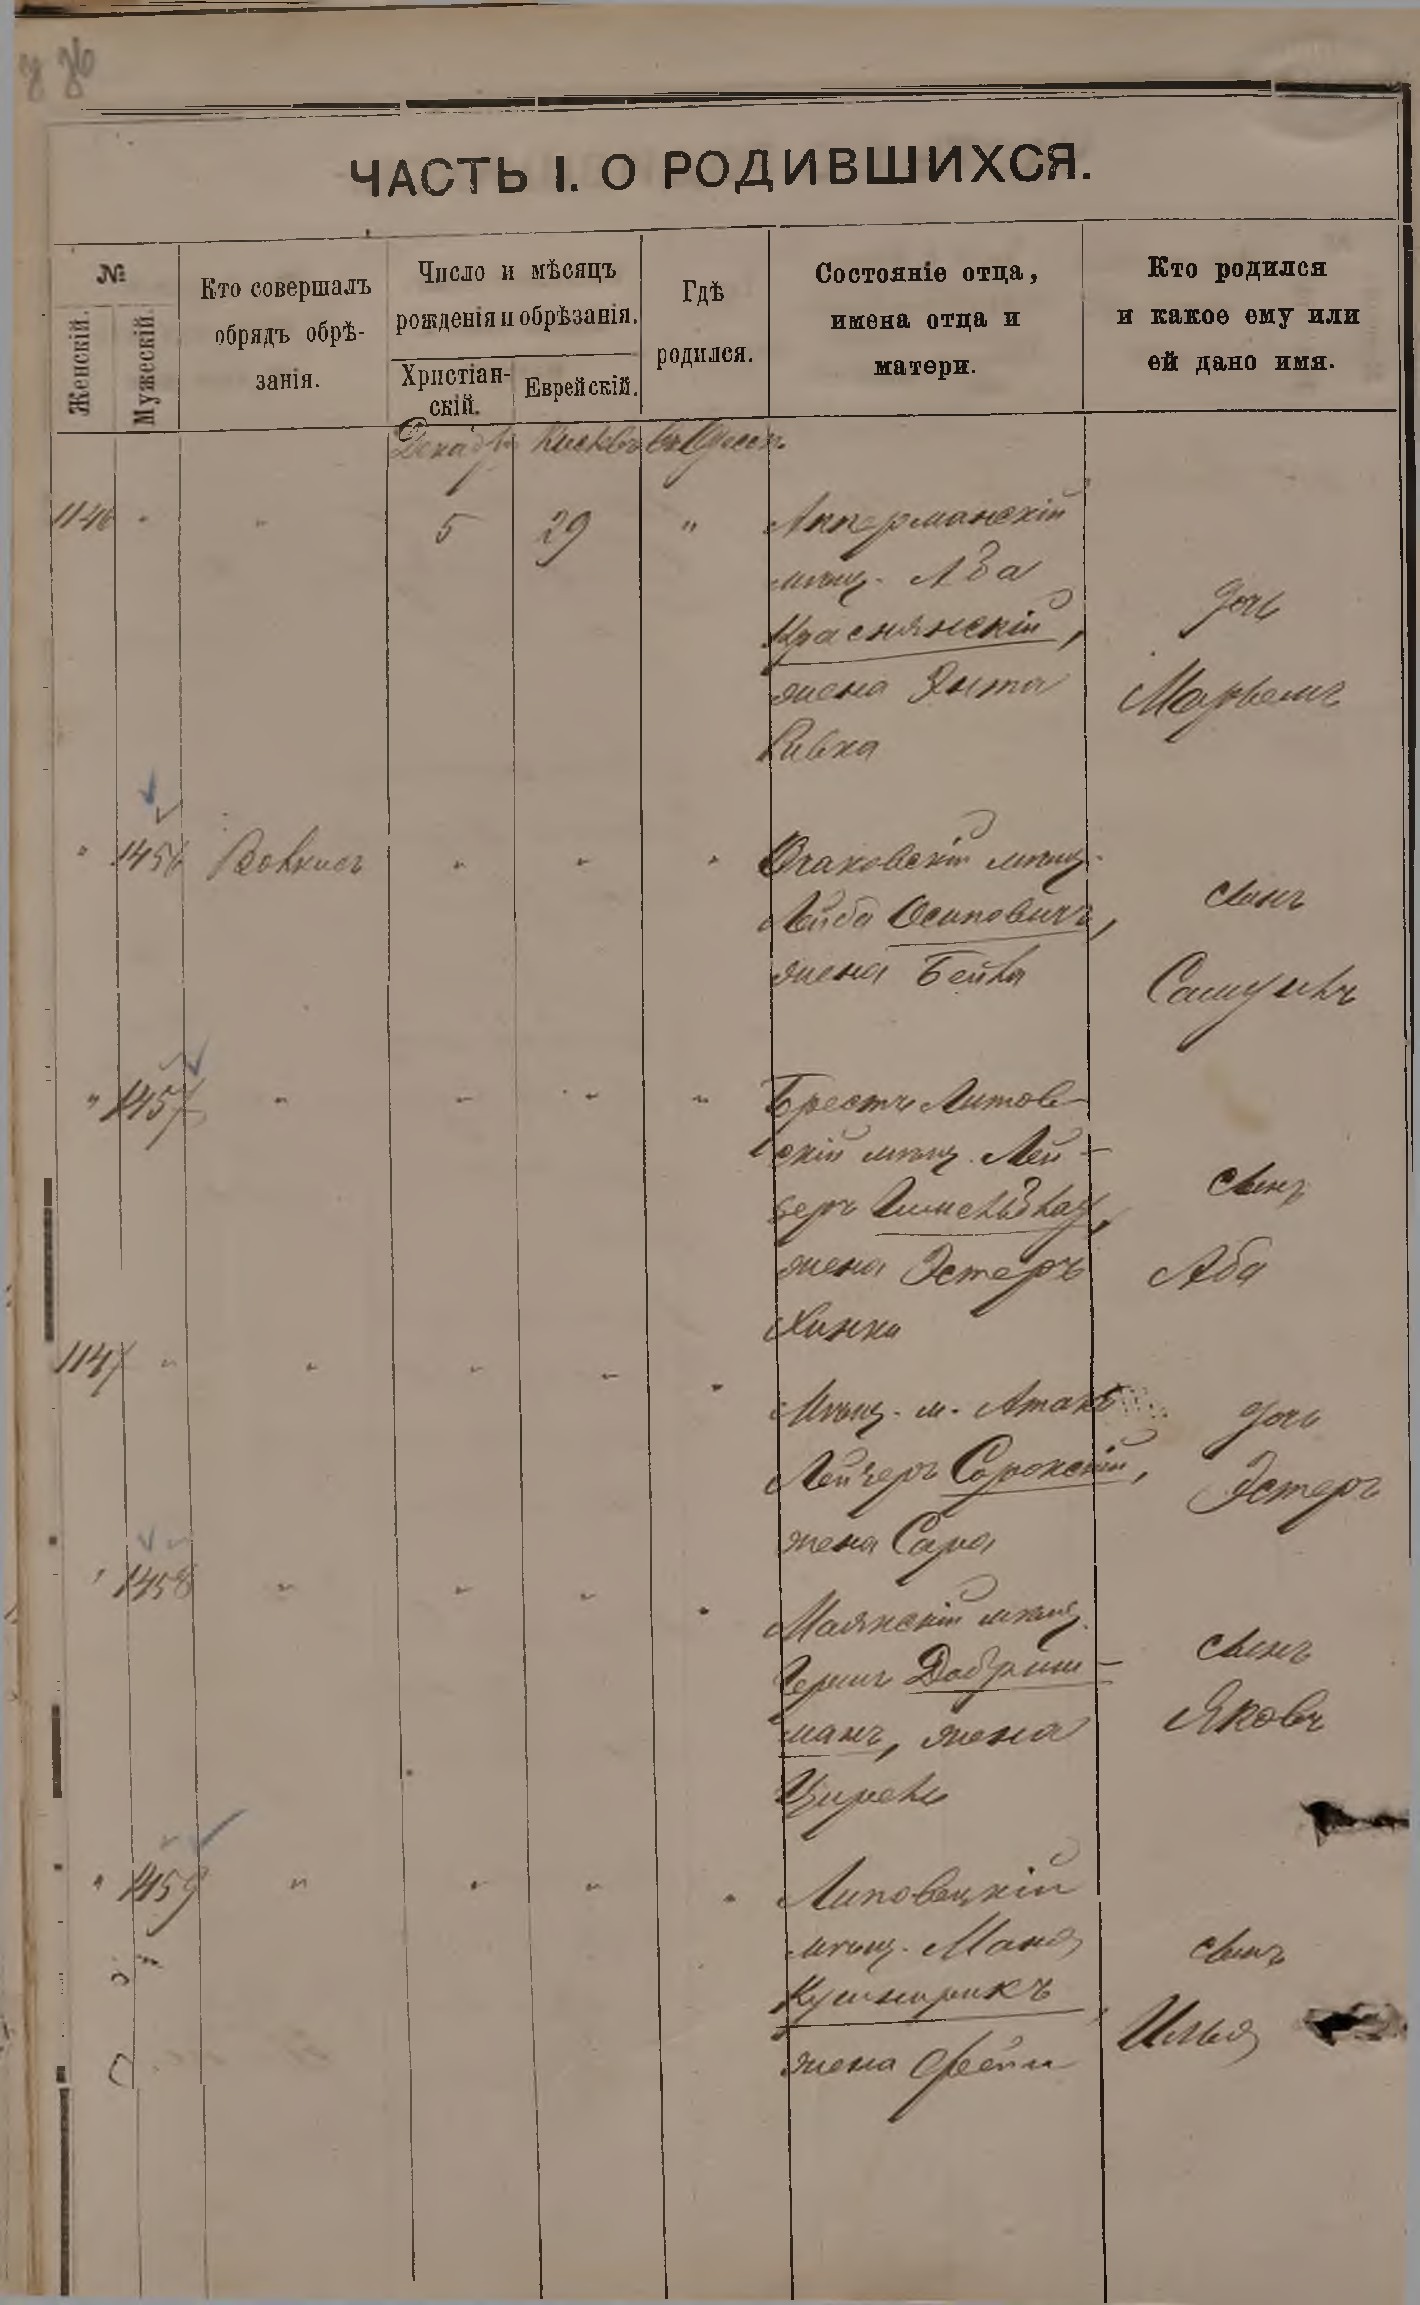 ЧАСТЬ I. О РОДИВШИХСЯ.
№
Женскій.
Мужескій.
Кто совершалъ
обрядъ обрѣ-
занія.
Число и мѣсяцъ
рожденія и обрѣзанія.
Христіан-
скій.
Еврейскій.
Гдѣ
родился.
Состояніе отца,
имена отца и
матери.
Кто родился
и какое ему или
ей дано имя.
Декабрь Кислевъ въ Одессѣ
1146 " " 5 29 " Аккерманскій
мѣщ.
Краснянскій,
жена Энта
Ривка
дочь
" 1456 " " " Очаковскій мѣщ.
Лейба Осиповичъ,
жена Бейла
сынъ
Самуилъ
" 1457 " " " " Брестъ Литов-
скій мѣщ. Лей-
зеръ
жена Эстеръ
Хинка
сынъ
Аба
1147 " " " " " Мѣщ. м. Атакъ
Лейзеръ Сорокскій,
жена Сара
дочь
Эстеръ
" 1458 " " " " Маякскій мѣщ.
Гершъ Добриш-
манъ, жена
Цирель
сынъ
Яковъ
" 1459 " " " " Липовецкій
мѣщ.
Кушнирикъ,
жена
сынъ
Илья